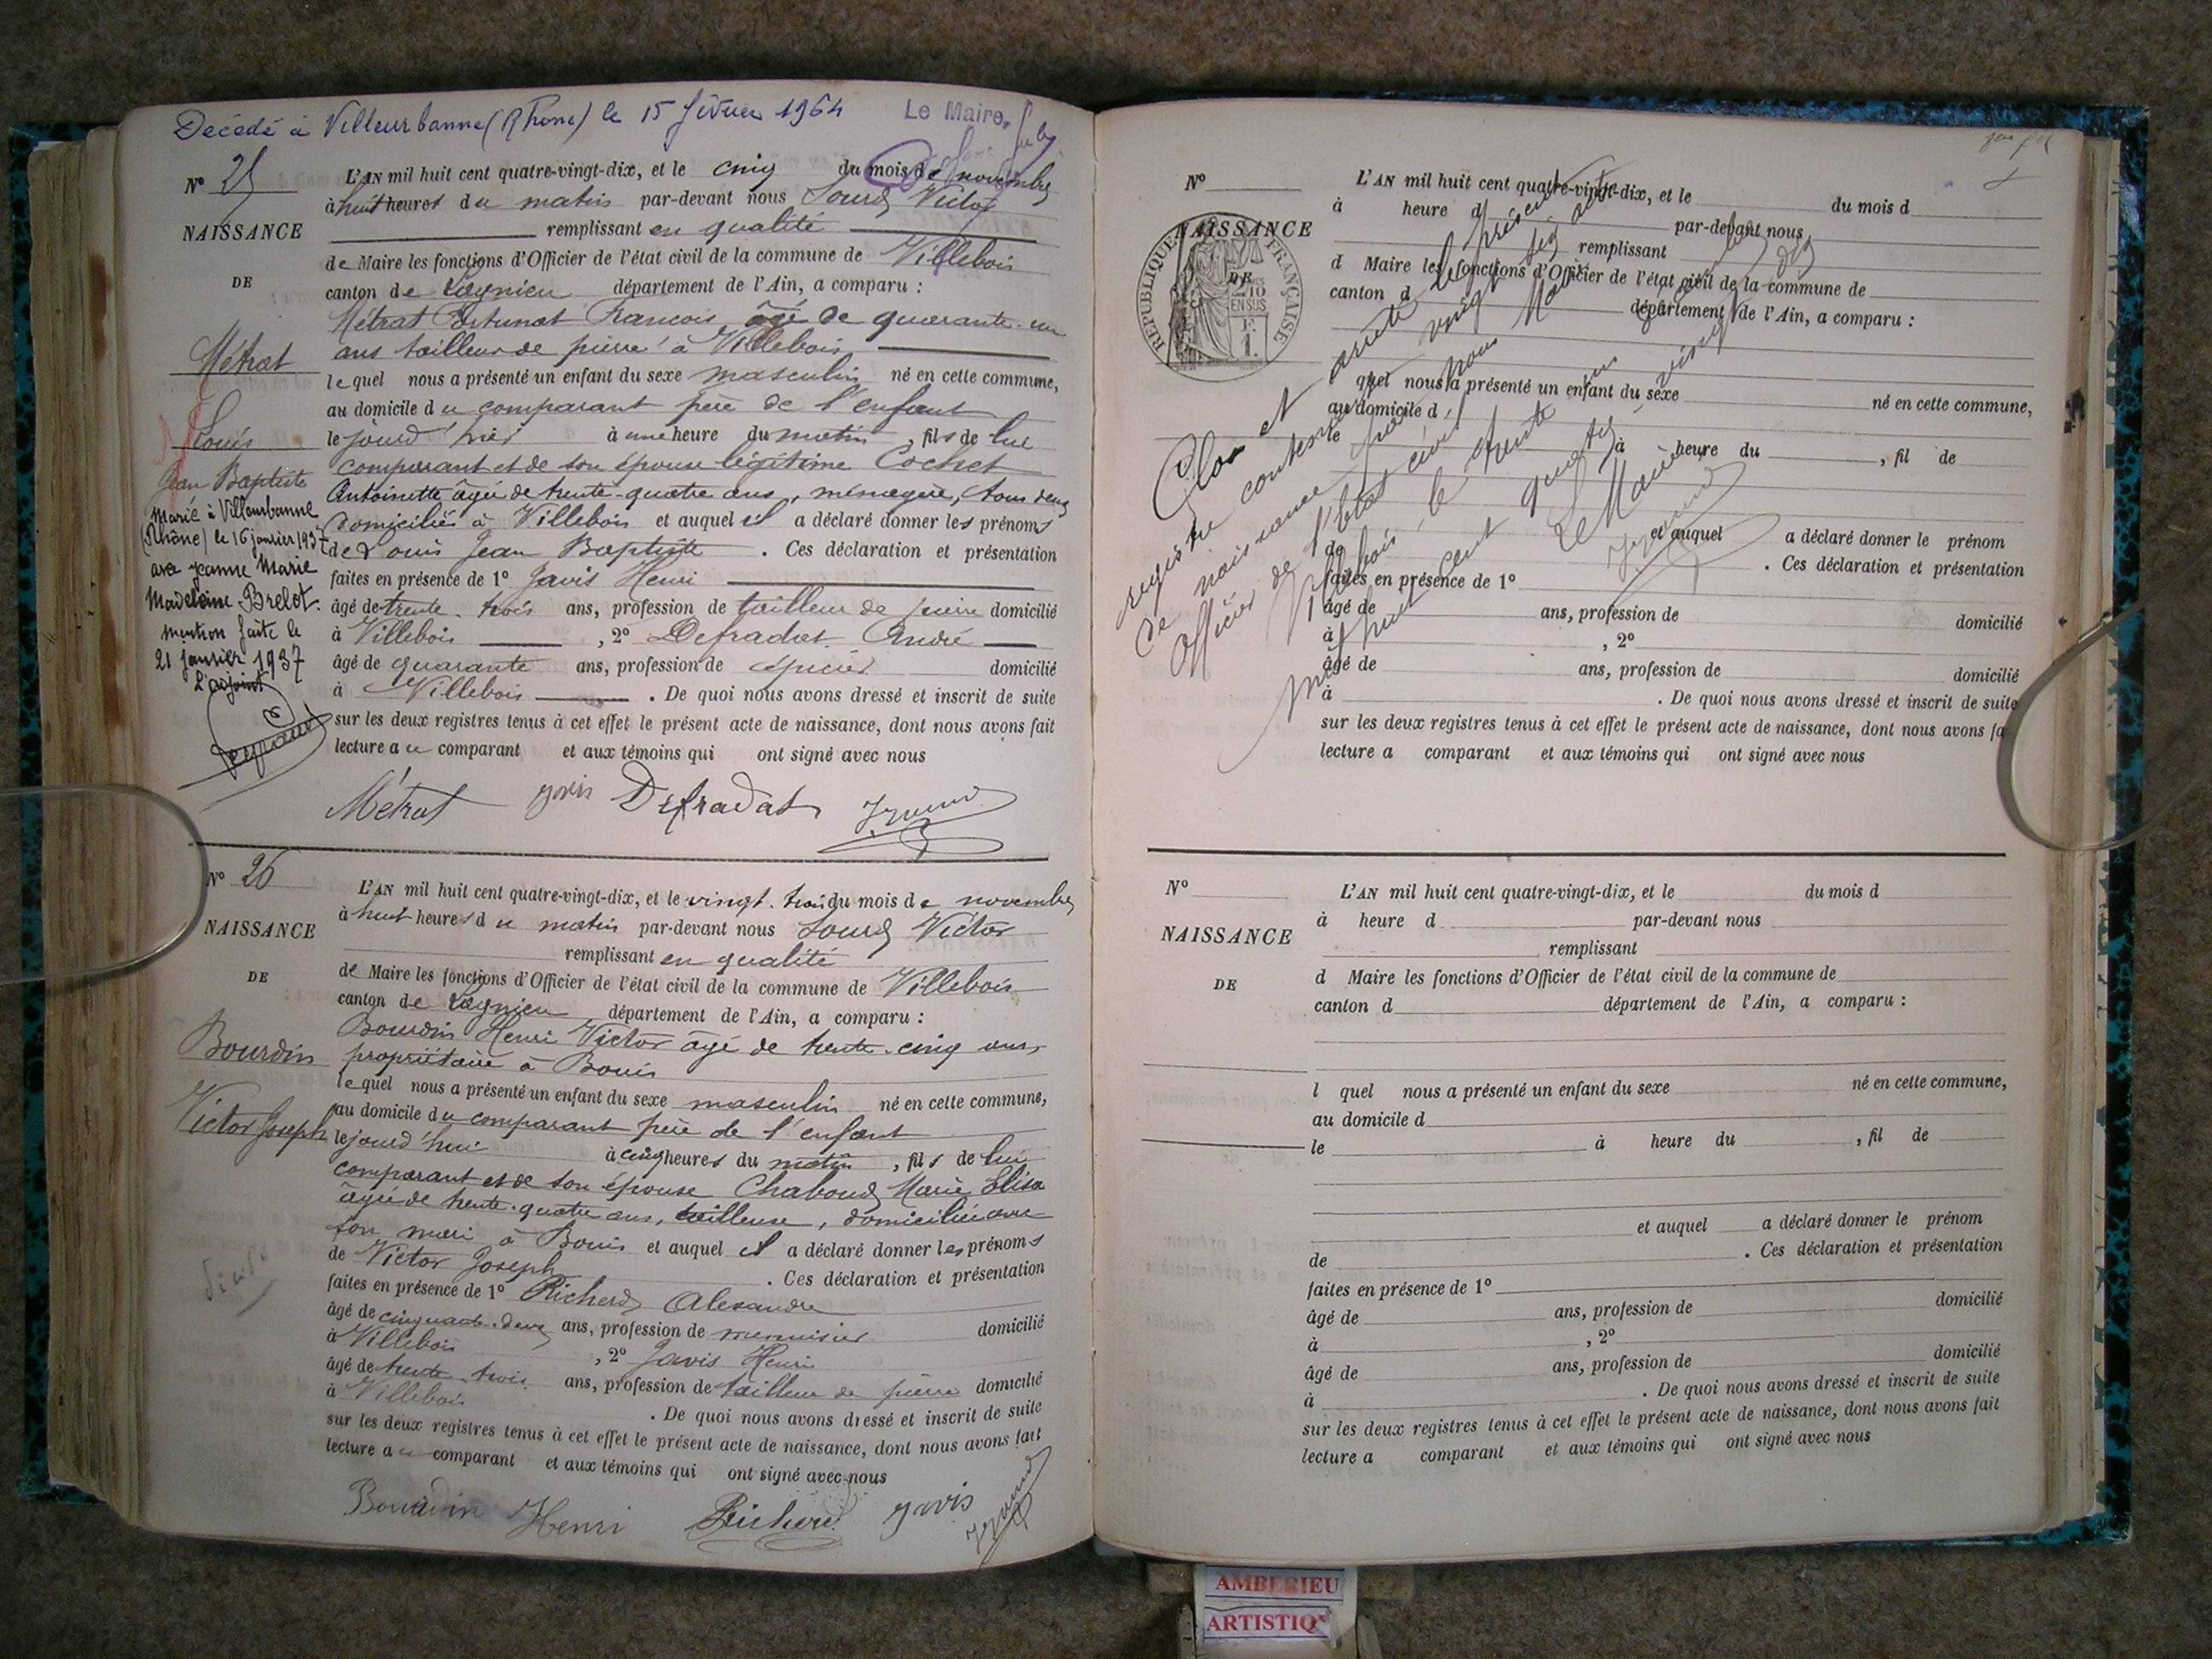 Décédé à Villeurbanne (Rhône) le 15 février 1964 Le Maire,
N° 25
NAISSANCE
DE
Métrat
Louis
Jean Baptiste
Marié à Villeurbanne
(Rhône) le 16 janvier 1937
avec Jeanne Marie
Madeleine Brelot.
mention faite le
21 janvier 1937
L'adjoint
L'AN mil huit cent quatre-vingt-dix, et le cinq du mois de novembre
à huit heures du matin par-devant nous Victor
remplissant en qualité
de Maire les fonctions d'Officier de l'état civil de la commune de Villebois
canton de Lagnieu département de l'Ain, a comparu :
Métrat Fortunat François âgé de quarante-un
ans tailleur de pierre à Villebois
lequel nous a présenté un enfant du sexe masculin né en cette commune,
au domicile du comparant père de l'enfant
le jourd'hier à une heure du matin, fils de lui
comparant et de son épouse légitime Cochet
Antoinette âgée de trente-quatre ans, ménagère, tous deux
domiciliés à Villebois et auquel il a déclaré donner les prénoms
de Louis Jean Baptiste . Ces déclaration et présentation
faites en présence de 1° Javis Henri
âgé de trente-trois ans, profession de tailleur de pierre domicilié
à Villebois , 2° Defradat André
âgé de quarante ans, profession de épicier domicilié
à Villebois . De quoi nous avons dressé et inscrit de suite
sur les deux registres tenus à cet effet le présent acte de naissance, dont nous avons fait
lecture au comparant et aux témoins qui ont signé avec nous
Métrat Javis Defradat
N° 26
NAISSANCE
DE
Bourdin
Victor Joseph
L'AN mil huit cent quatre-vingt-dix, et le vingt-trois du mois de novembre
à huit heures du matin par-devant nous Victor
remplissant en qualité
de Maire les fonctions d'Officier de l'état civil de la commune de Villebois
canton de Lagnieu département de l'Ain, a comparu :
Bourdin Henri Victor âgé de trente-cinq ans,
propriétaire à Bouis
lequel nous a présenté un enfant du sexe masculin né en cette commune,
au domicile du comparant père de l'enfant
le jourd'hui à cinq heures du matin, fils de lui
comparant et de son épouse Chaboud Marie Elisa
âgée de trente-quatre ans, tailleuse, domiciliée avec
son mari à Bouis et auquel il a déclaré donner les prénoms
de Victor Joseph . Ces déclaration et présentation
faites en présence de 1° Richerd Alexandre
âgé de cinquante-deux ans, profession de menuisier domicilié
à Villebois , 2° Javis Henri
âgé de trente-trois ans, profession de tailleur de pierre domicilié
à Villebois . De quoi nous avons dressé et inscrit de suite
sur les deux registres tenus à cet effet le présent acte de naissance, dont nous avons fait
lecture au comparant et aux témoins qui ont signé avec nous
Bourdin Henri Richerd Javis
N°
NAISSANCE
DE
RÉPUBLIQUE FRANÇAISE
2/10
EN SUS
L'AN mil huit cent quatre-vingt-dix, et le du mois d
à heure d par-devant nous
remplissant
d Maire les fonctions d'Officier de l'état civil de la commune de
canton d département de l'Ain, a comparu :
quel nous a présenté un enfant du sexe né en cette commune,
au domicile d
le à heure du , fil de
et auquel a déclaré donner le prénom
de . Ces déclaration et présentation
faites en présence de 1°
âgé de ans, profession de domicilié
à , 2°
âgé de ans, profession de domicilié
à . De quoi nous avons dressé et inscrit de suite
sur les deux registres tenus à cet effet le présent acte de naissance, dont nous avons fa
lecture a comparant et aux témoins qui ont signé avec nous
Clos et arrêté le présent
registre contenant vingt six actes
de naissance par nous Maire
Officier de l'état civil
Villebois le trente un
mil huit cent quatre vingt dix
Le Maire
N°
NAISSANCE
DE
L'AN mil huit cent quatre-vingt-dix, et le du mois d
à heure d par-devant nous
remplissant
d Maire les fonctions d'Officier de l'état civil de la commune de
canton d département de l'Ain, a comparu :
l quel nous a présenté un enfant du sexe né en cette commune,
au domicile d
le à heure du , fil de
et auquel a déclaré donner le prénom
de . Ces déclaration et présentation
faites en présence de 1°
âgé de ans, profession de domicilié
à , 2°
âgé de ans, profession de domicilié
à . De quoi nous avons dressé et inscrit de suite
sur les deux registres tenus à cet effet le présent acte de naissance, dont nous avons fait
lecture a comparant et aux témoins qui ont signé avec nous
AMBERIEU
ARTISTIQ